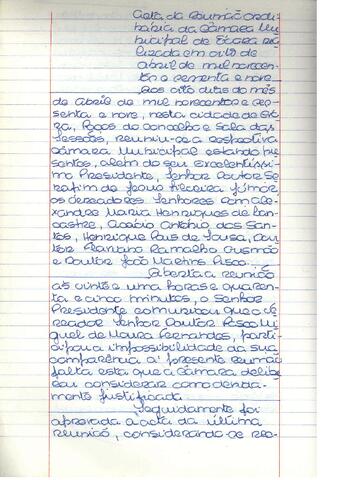 Acta da reunião ordi-
nária da Câmara Mu-
nicipal de Évora rea-
lizada em oito de
abril de mil novecen-
tos e sessenta e nove.
Aos oito dias do mês
de Abril de mil novecentos e ses-
senta e nove, nesta cidade de Évo-
ra, Paços do Concelho e Sala das
Sessões, reuniu-se a respectiva
Câmara Municipal estando pre-
sentes, além do seu Excelentíssi-
mo Presidente, Senhor Doutor Se-
rafim de Jesus Silveira Júnior,
os Vereadores Senhores Dom Ale-
xandre Maria Henriques de Lan-
castre, Acácio António dos San-
tos, Henrique Pais de Sousa, Dou-
tor Mariano Ramalho Gusmão
e Doutor João Martins Pisco.
Aberta a reunião
às vinte e uma horas e quaren-
ta e cinco minutos, o Senhor
Presidente comunicou que o Ve-
reador Senhor Doutor Mi-
guel de Moura Fernandes, parti-
cipou a impossibilidade da sua
comparência à presente reunião
falta esta que a Câmara delibe-
rou considerar como devida-
mente justificada.
Seguidamente foi
aprovada a acta da última
reunião, considerando-se